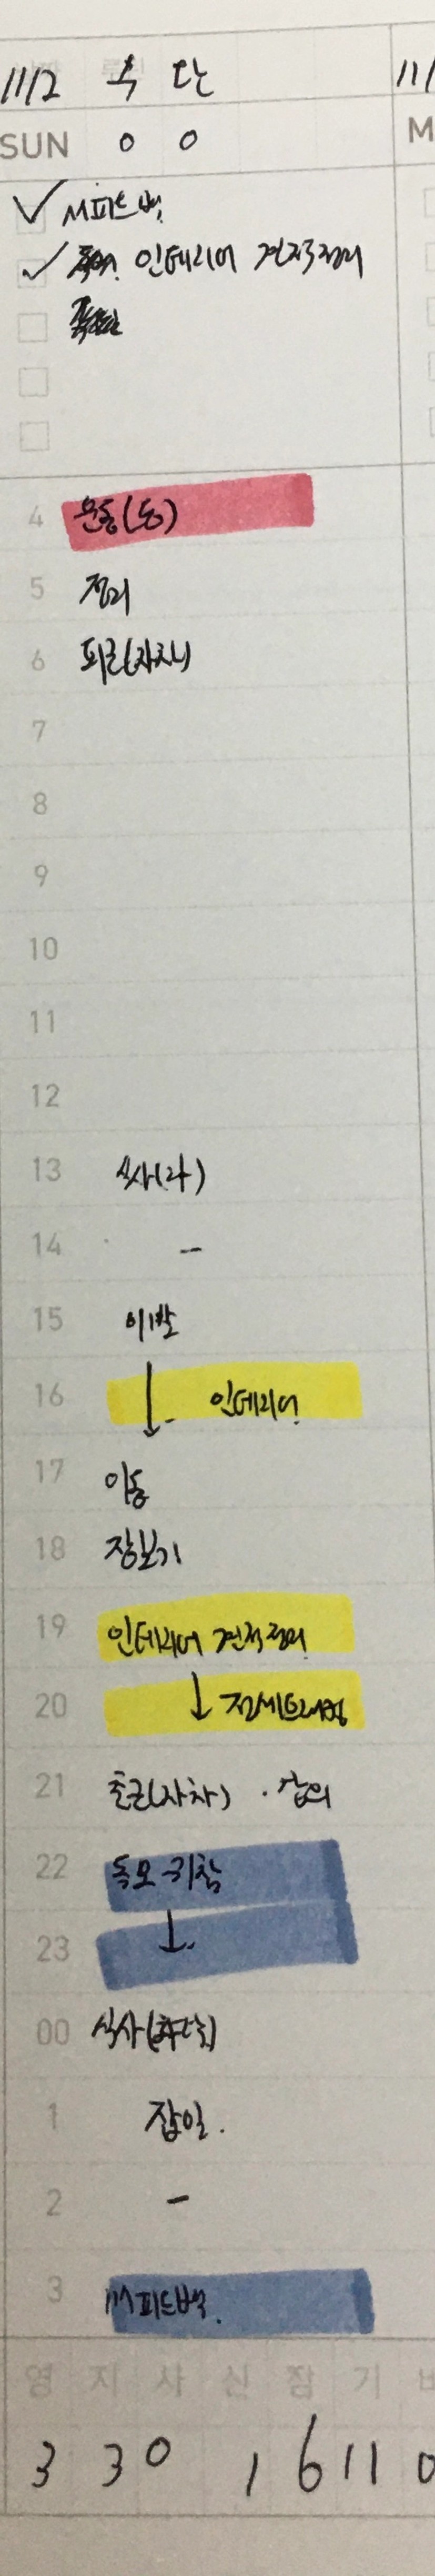 11/2 수 단 11/
SUN 0 0 M
M피드백
인테리어 견적정리
4 운동(등)
5 정리
6 퇴근(자차)
7
8
9
10
11
12
13 식사(라)
14 -
15 이발
16 ↓ 인테리어
17 이동
18 장보기
19 인테리어 견적정리
20 ↓
21 출근(자차) · 잡의
22 독모
23 ↓
00 식사
1 잡일.
2 -
3 M피드백.
영 지 사 신 잠 기
3 3 0 1 6 11 0